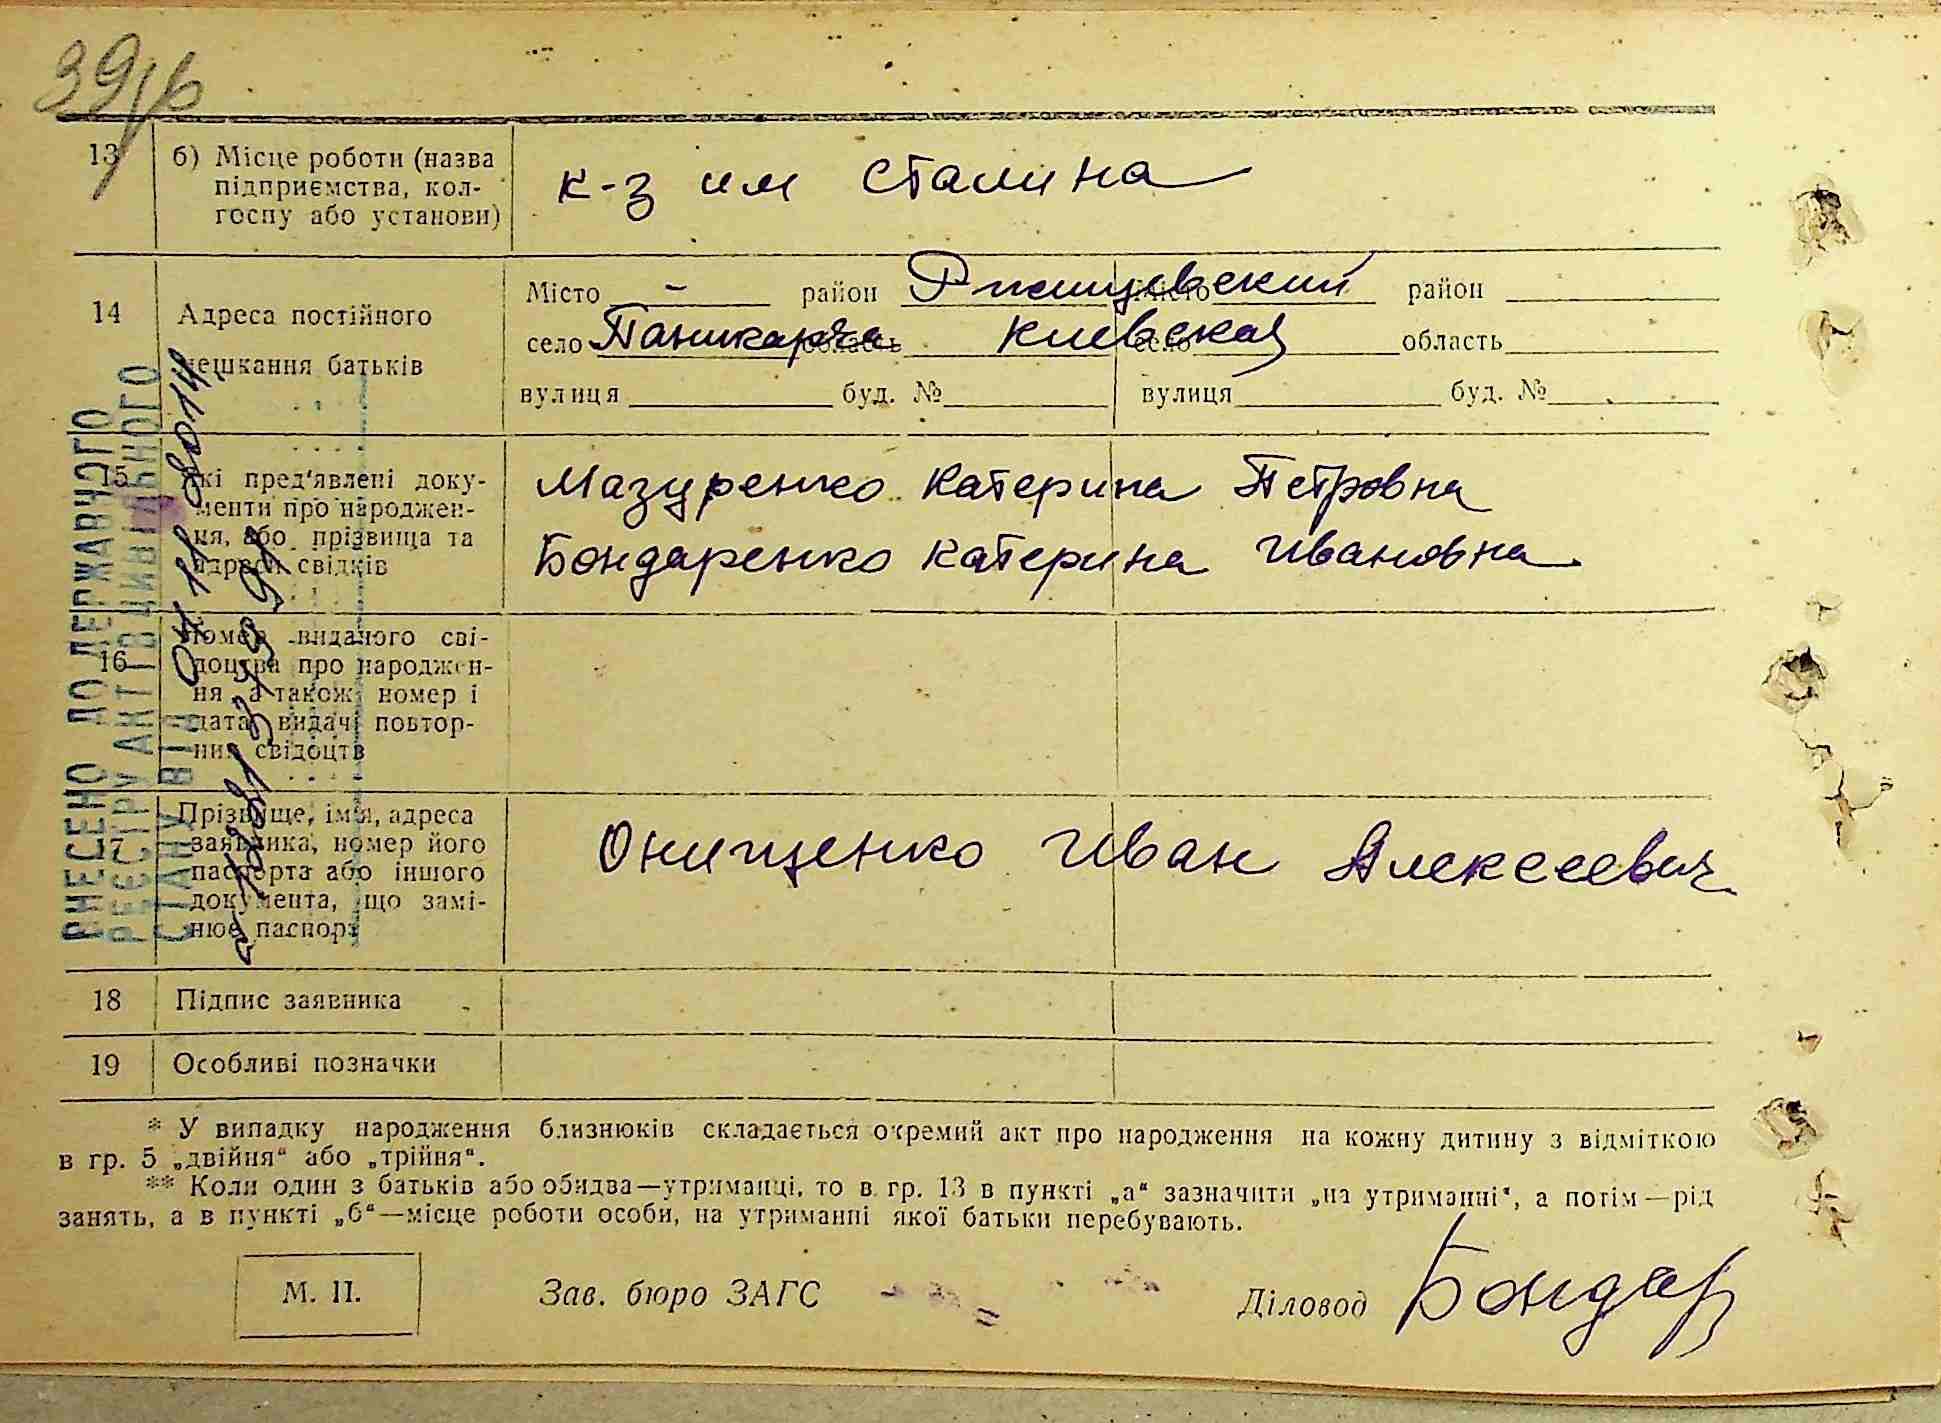 13 б) Місце роботи (назва
підприємства, кол-
госпу або установи)
к-з им Сталина
14 Адреса постійного
мешкання батьків
Місто - район Ржищевский місто район
село Паникарча область Киевская село область
вулиця буд. № вулиця буд. №
15 Які пред'явлені доку-
менти про народжен-
ня, або прізвища та
адреси свідків
Мазуренко Катерина Петровна
Бондаренко Катерина Ивановна
16 Номер виданого сві-
доцтва про народжен-
ня а також номер і
дата видачі повтор-
них свідоцтв
17 Прізвище, ім'я, адреса
заявника, номер його
паспорта або іншого
документа, що замі-
нює паспорт
Онищенко Иван Алексеевич
18 Підпис заявника
19 Особливі позначки
ВНЕСЕНО ДО ДЕРЖАВНОГО
РЕЄСТРУ АКТІВ ЦИВІЛЬНОГО
СТАНУ
* У випадку народження близнюків складається окремий акт про народження на кожну дитину з відміткою
в гр. 5 „двійня“ або „трійня“.
** Коли один з батьків або обидва—утриманці, то в гр. 13 в пункті „а“ зазначити „на утриманні“, а потім—рід
занять, а в пункті „б“—місце роботи особи, на утриманні якої батьки перебувають.
М. П. Зав. бюро ЗАГС Діловод Бондар